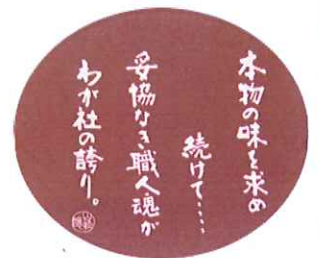 本物の味を求め
続けて・・・・
妥協なき職人魂が
わが社の誇り。